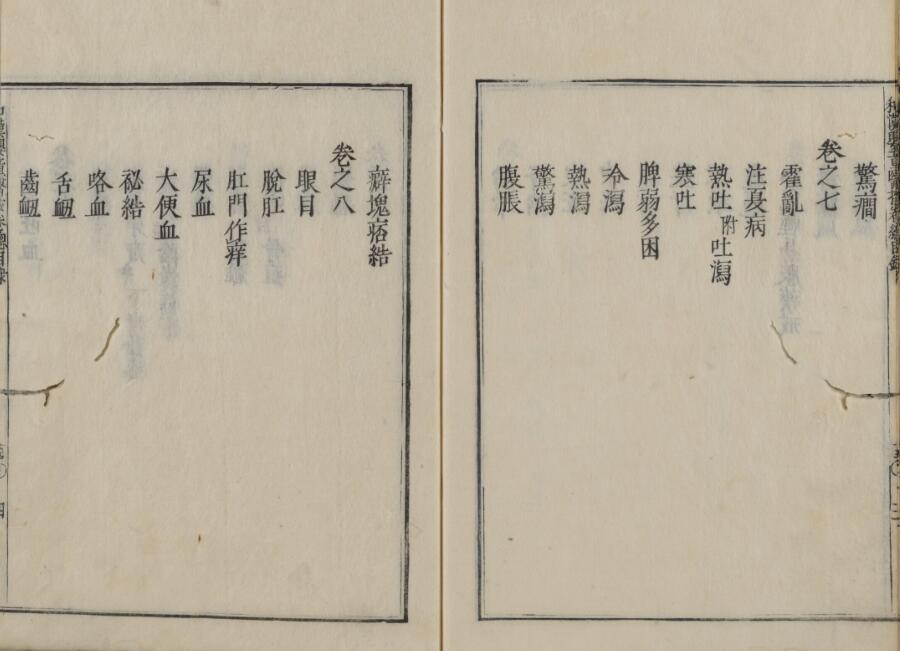 驚癎
卷之七
霍亂
注夏病
熱吐附吐瀉
寒吐
脾弱多困
冷瀉
熱瀉
驚瀉
腹脹
癖塊痞結
卷之八
眼目
脫肛
肛門作痒
尿血
大便血
祕結
咯血
舌衄
齒衄